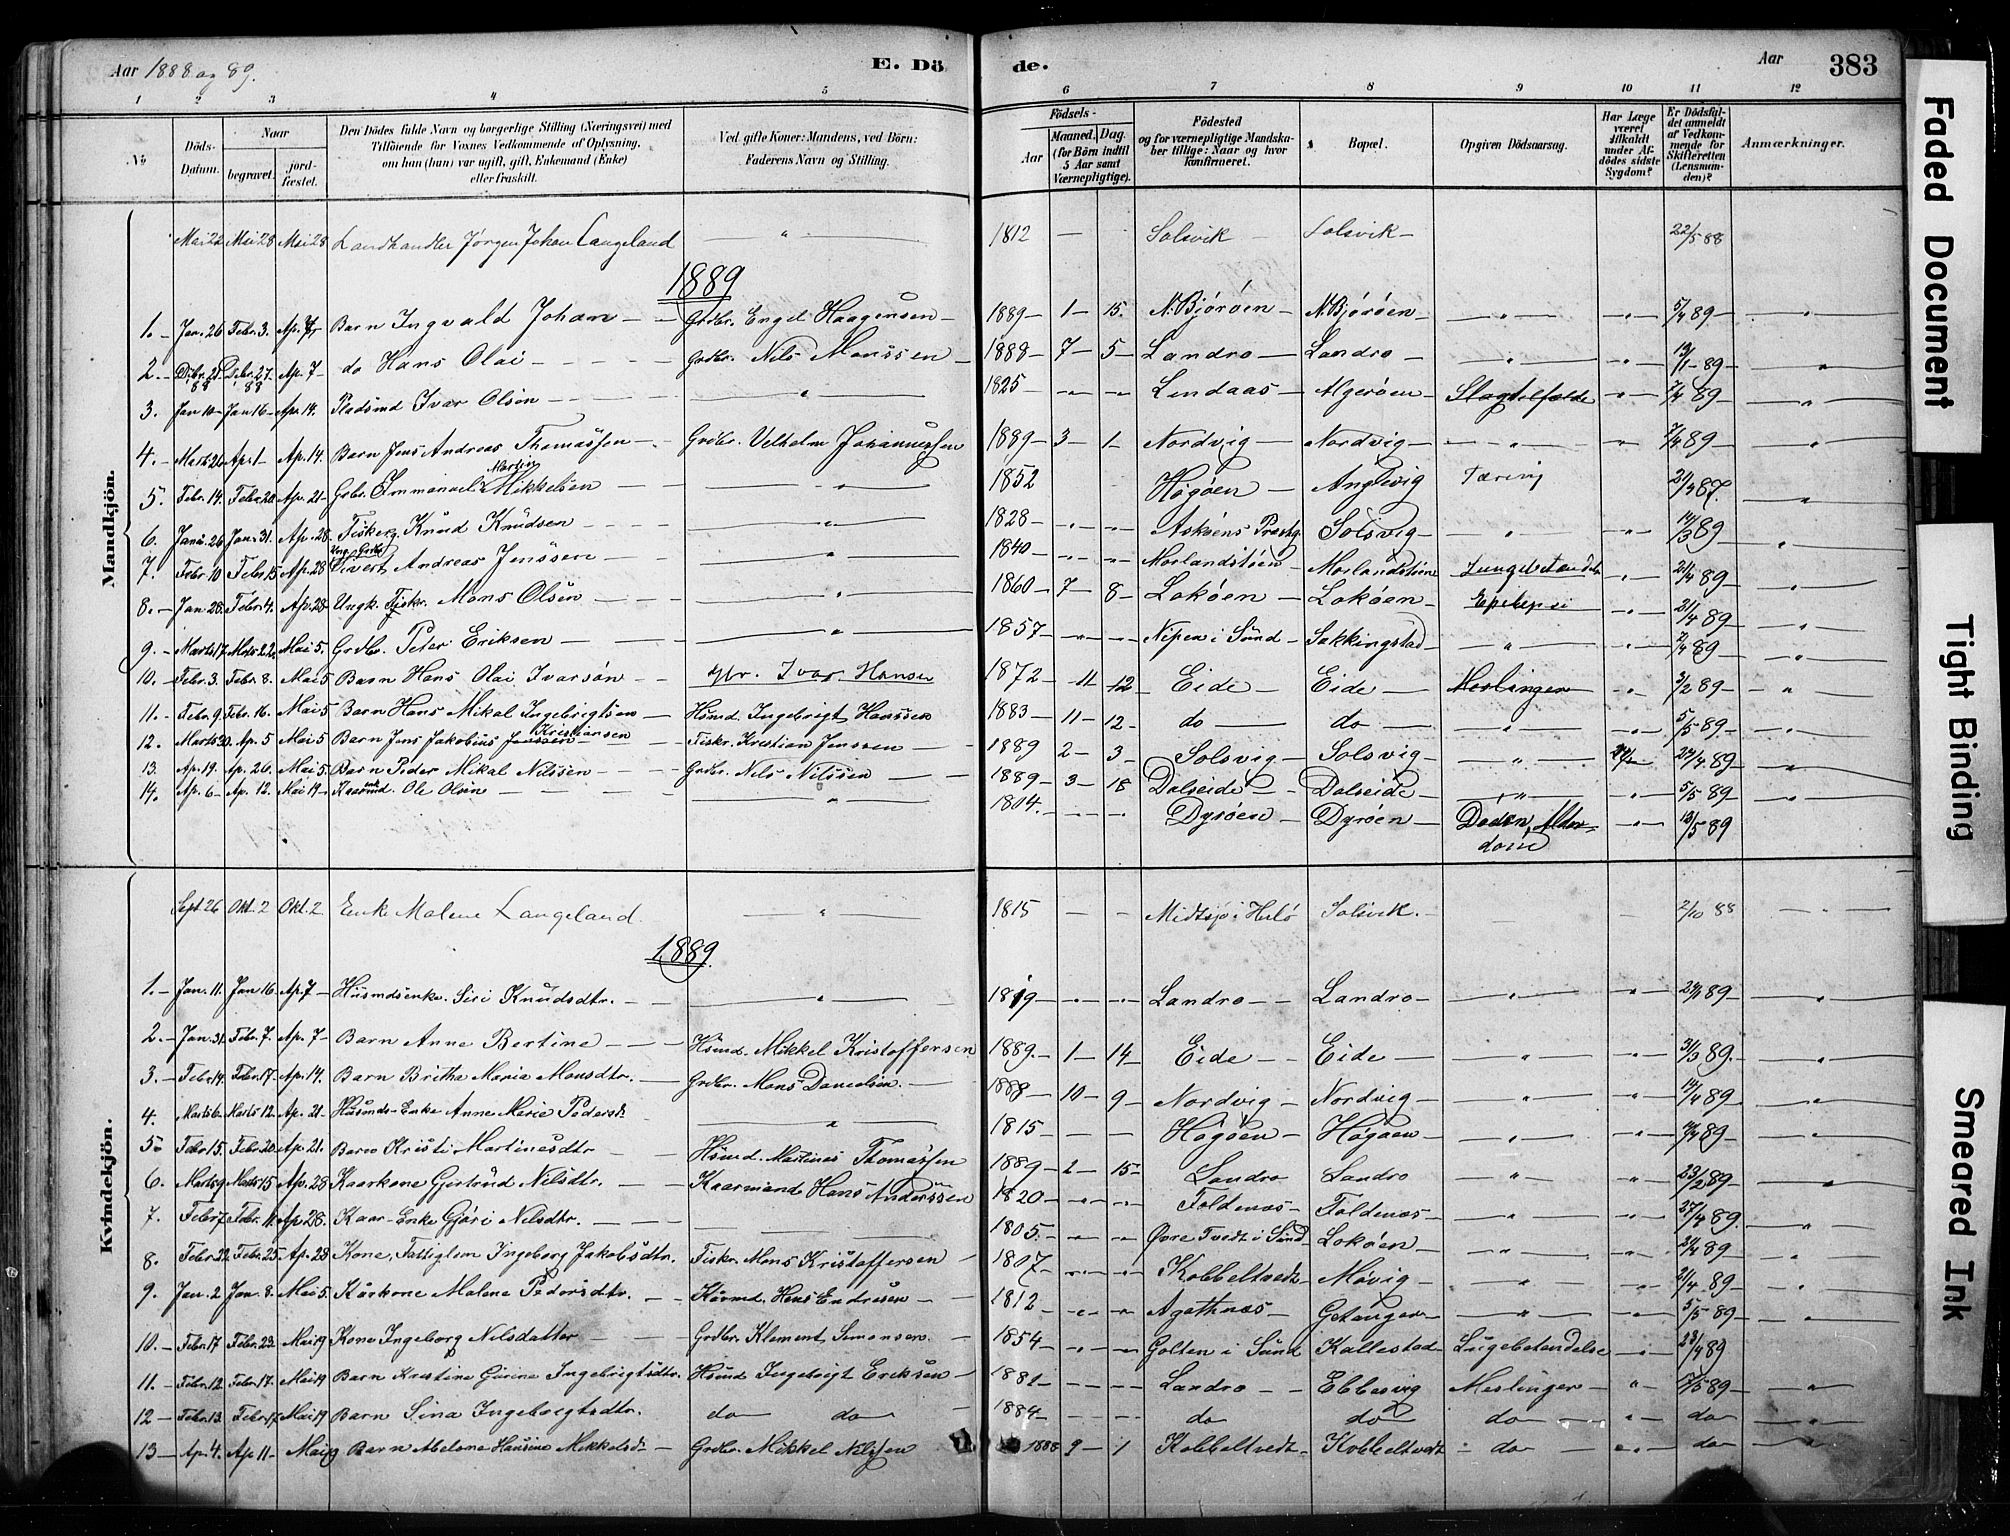 Aar 1888 og 89.
E. Dö
de.
Aar
383
1 2 3 4 5 6 7 8 9 10 11 12
No
Döds-Datum.
Naar
begravet.
jordfæstet.
Den Dödes fulde Navn og borgerlige Stilling (Næringsvei) med
Tilföiende for Voxnes Vedkommende af Oplysning,
om han (hun) var ugift, gift, Enkemand (Enke)
eller fraskilt.
Ved gifte Koner: Mandens, ved Börn:
Faderens Navn og Stilling.
Födsels-
Aar
Maaned. Dag.
(for Börn indtil
5 Aar samt
Værnepligtige).
Födested
og for værnepligtige Mandska-
ber tillige: Naar og hvor
konfirmeret.
Bopæl.
Opgiven Dödsaarsag.
Har Læge
været
tilkaldt
under Af-
dödes sidste
Sygdom?
Er Dödsfal-
det anmeldt
af Vedkom-
mende for
Skifteretten
(Lensman-
den)?
Anmærkninger.
Mandkjön.
Mai 22 Mai 28 Mai 28 Landhandler Jørgen Johan Langeland — " — 1812 — Solsvik Solsvik — 22/5 88
1889
1. Jan. 26 Febr. 3. Ap. 7 Barn Ingvald Johan — Grdbr. Engel Haagensen — 1889 — 1 — 15. N. Bjørøen — N. Bjørøen — " — " 5/4 89 — "
2. Debr. 21 88 Debr. 27 88 Ap. 7 — do Hans Olai — Grdbr. Nils Monssen — 1888 — 7 — 5 — Landro — Landro — " — " /1 — 89 — "
3. Jan 10 — Jan 16 — Ap. 14. Ivar Olsen — " 1825 — " — " Lindaas — Algerøen — " — 7/4 89 — "
4. — Marts 26 Ap. 1 — Ap. 14. Barn Jens Andreas Thomassen — Grdbr. Velhelm Johannessen 1889 — 3 — 1 — Nordvig — Nordvig — " — " 7/4 89 — "
5. Febr. 14. Febr. 20 Ap. 21 — Gbr. Emmanuel Martin Mikkelsen — 1852 Høgøen — Anglevig Tæring 21/4 87. "
6. Janu. 26 Jan. 31. Ap. 28 Fisker Knud Knudsen — " 1828 — " — " Askøens Præstg. Solsvig — " — " 14/3 89 "
7. Febr. 10 Febr. 15 Ap. 28 Andreas Jenssen — " 1840 — " — " Morlandstøen — Morlandstøen " — 21/4 89 — "
8. — Jan. 28. Febr. 4. Ap. 28 — Ungk. Fiskr. Mons Olsen — " 1860 — 7 — 8 — Lokøen — Lokøen — Epelepsi — " — 21/4 89 — "
9. — Marts 17. Mars 22. Mai 5. Grdbr. Peter Eriksen — " 1857 — " — Nipen i Sund — Sakkingstad — " — " 89 — "
10. — Febr. 3. Febr. 8. Mai 5 Barn Hans Olai Ivarsøn — Ivar Hansen 1872 — 11 — 12 — Eide — Eide — Meslinger — " — 3/2 89 — "
11. — Febr. 9. Febr. 16. Mai 5 — Barn Hans Mikal Ingebrigtsen — Hsmd. Ingebrigt Hanssen 1883 — 11 — 12 — do — do — " — " 5/5 89 — "
12. Marts 30. Ap. 5 Mai 5 Barn Jens Jakobius Jenssen Kristiansen — Fiskr. Kristian Jenssen — 1889 2 — 3 — Solsvig — Solsvig — " — 24/4 89 — "
13. Ap. 19. Ap. 26. Mai 5. Barn Peder Mikal Nilssen — Grdbr. Nils Nilssen — 1889 — 3 — 18 Dalseide — Dalseide — " — " — 5/5 89 — "
14. Ap. 6 — Ap. 12. Mai 19 — Ole Olsen — " 1804. — Dyrøen — Dyrøen — Døden, Alder-
dom — " — 13/5 89
Kvindekjön.
Sept 26 Okt. 2 Okt. 2 Enke Malene Langeland. — " — 1815 — Midtsjø i Herlø Solsvik. — 2/10 88 — " —
1889.
1. — Jan. 11. Jan 16. Ap. 7 — Husmdsenke. Siri Knudsdtr. — " 1819 — " — " Landro — Landro — " — " 89 — "
2. — Jan. 31. Febr. 7. Ap. 7 — Barn Anne Bertine — Hsmd. Mikkel Kristoffersen 1889. — 1 — 14 — Eide — Eide — " — " 31/3 89. — "
3. — Febr 14. Febr. 17. Ap. 14. Barn Britha Maria Monsdtr. — Grdbr. Mons Danielsen. — 1888 — 10 — 9 — Nordvig — Nordvig — " — " 14/4 89 — "
4. Marts 6 — Marts 12. Ap. 21 — Husmds-Enke Anne Marie Pedersd — " 1815 — Høgøen — Høgøen — " — " 89 — "
5. Febr. 15. Febr. 20. Ap. 21. Barn Kristi Martinusdtr — Hsmd. Martinus Thomassen 1889 — 2 — 15 — Landro — Landro " — " 23/2 89 — "
6. Marts 9. Marts 15 Ap. 28 Kaarkone Gjertrud Nilsdtr. — Kaarmand Hans Anderssen 1820 — " — " Foldenæs — Foldenæs — " — " 27/4 89. "
7. Febr 7. Febr. 11. Ap 28. Kaar-Enke Gjøri Nilsdtr. — 1805. — " — " Øvre Tvedt i Sund — Lokøen — " — " 21/4 89 — "
8. Febr. 22. Febr. 25. Ap. 28 Kone, Fattiglem Ingeborg Jakobsdtr. Fiskr. Mons Kristoffersen — 1807. — " — " Kobbeltvedt — Møvig — " — " 21/4 — 89 — "
9. Jan. 2 Jan. 8. Mai 5. Kårkone Malene Pedersdtr. — Kårmd. Hans Endresen — 1812 — " — " Agothnæs — Getanger — " — " 5/5 89 — "
10. — Febr. 17 Febr. 23. Mai 19 Kone Ingeborg Nilsdatter — Grdbr. Klement Simonsen. — 1854 — " — " Golten i Sund Kallestad — Lugebetendelse — " 23/4 89
11. — Febr. 12 Febr. 17. Mai 19 Barn Kristine Gurine Ingebrigtsdtr. Hsmd Ingebrigt Eriksen — 1881 — Landro — Ebbesvig Meslinger — " — 7/5 89 — "
12 — Febr. 13. Febr. 17. Mai 19 Barn Sina Ingebrigtsdtr. do do — 1884 — do do do — " — do — "
13 — Ap. 4. Ap 11 — Mai 19 Barn Abelone Hansine Mikkelsdt — Grdbr. Mikkel Nilssen 1888 9 — 1 Kobbeltvedt — Kobbeltvedt — do — " — do — "
Faded Document
Tight Binding
Smeared Ink